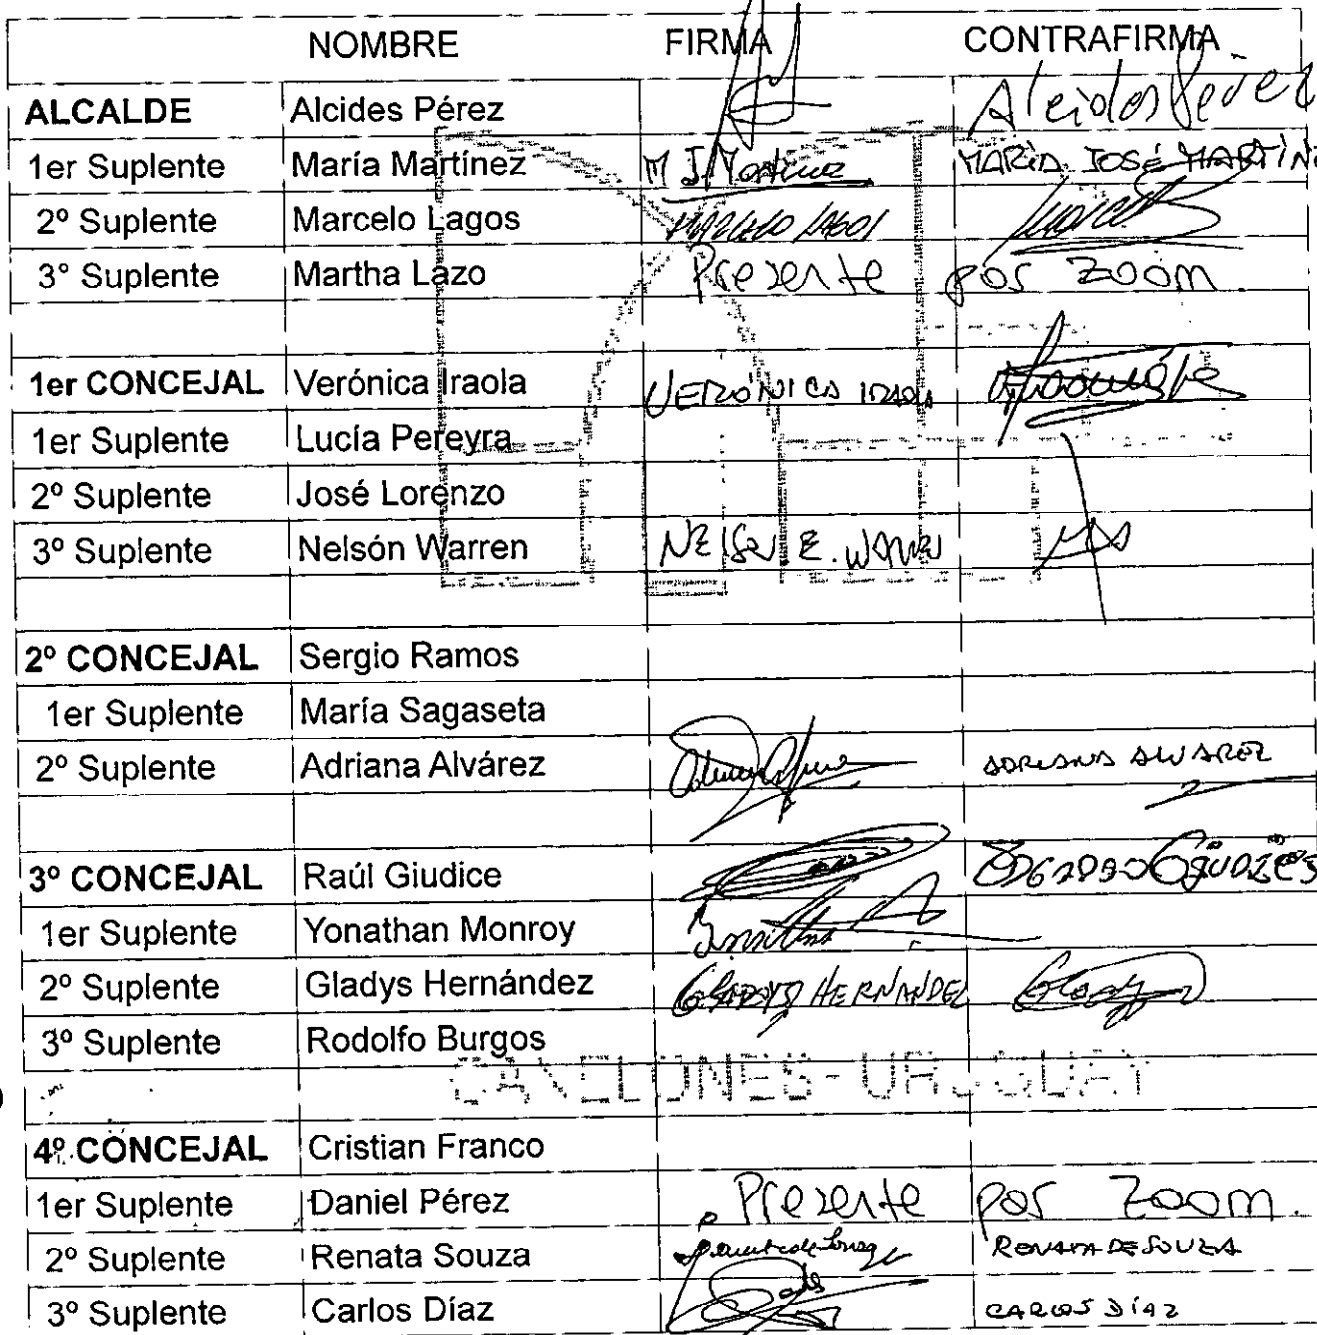 NOMBRE FIRMA CONTRAFIRMA
ALCALDE Alcides Pérez Alcides Pérez
1er Suplente María Martínez M J Martínez MARÍA JOSÉ MARTÍNE
2º Suplente Marcelo Lagos MARCELO LAGOS
3° Suplente Martha Lazo Presente por Zoom
1er CONCEJAL Verónica Iraola VERÓNICA IRAOLA
1er Suplente Lucía Pereyra
2º Suplente José Lorenzo
3º Suplente Nelsón Warren NELSON E. WARREN
2º CONCEJAL Sergio Ramos
1er Suplente María Sagaseta
2º Suplente Adriana Alvárez ADRIANA ALVAREZ
3º CONCEJAL Raúl Giudice
1er Suplente Yonathan Monroy
2º Suplente Gladys Hernández GLADYS HERNANDEZ Gladys
3º Suplente Rodolfo Burgos
CANELONES - URUGUAY
4º CONCEJAL Cristian Franco
1er Suplente Daniel Pérez Presente por Zoom.
2º Suplente Renata Souza RENATA DE SOUZA
3º Suplente Carlos Díaz CARLOS DÍAZ